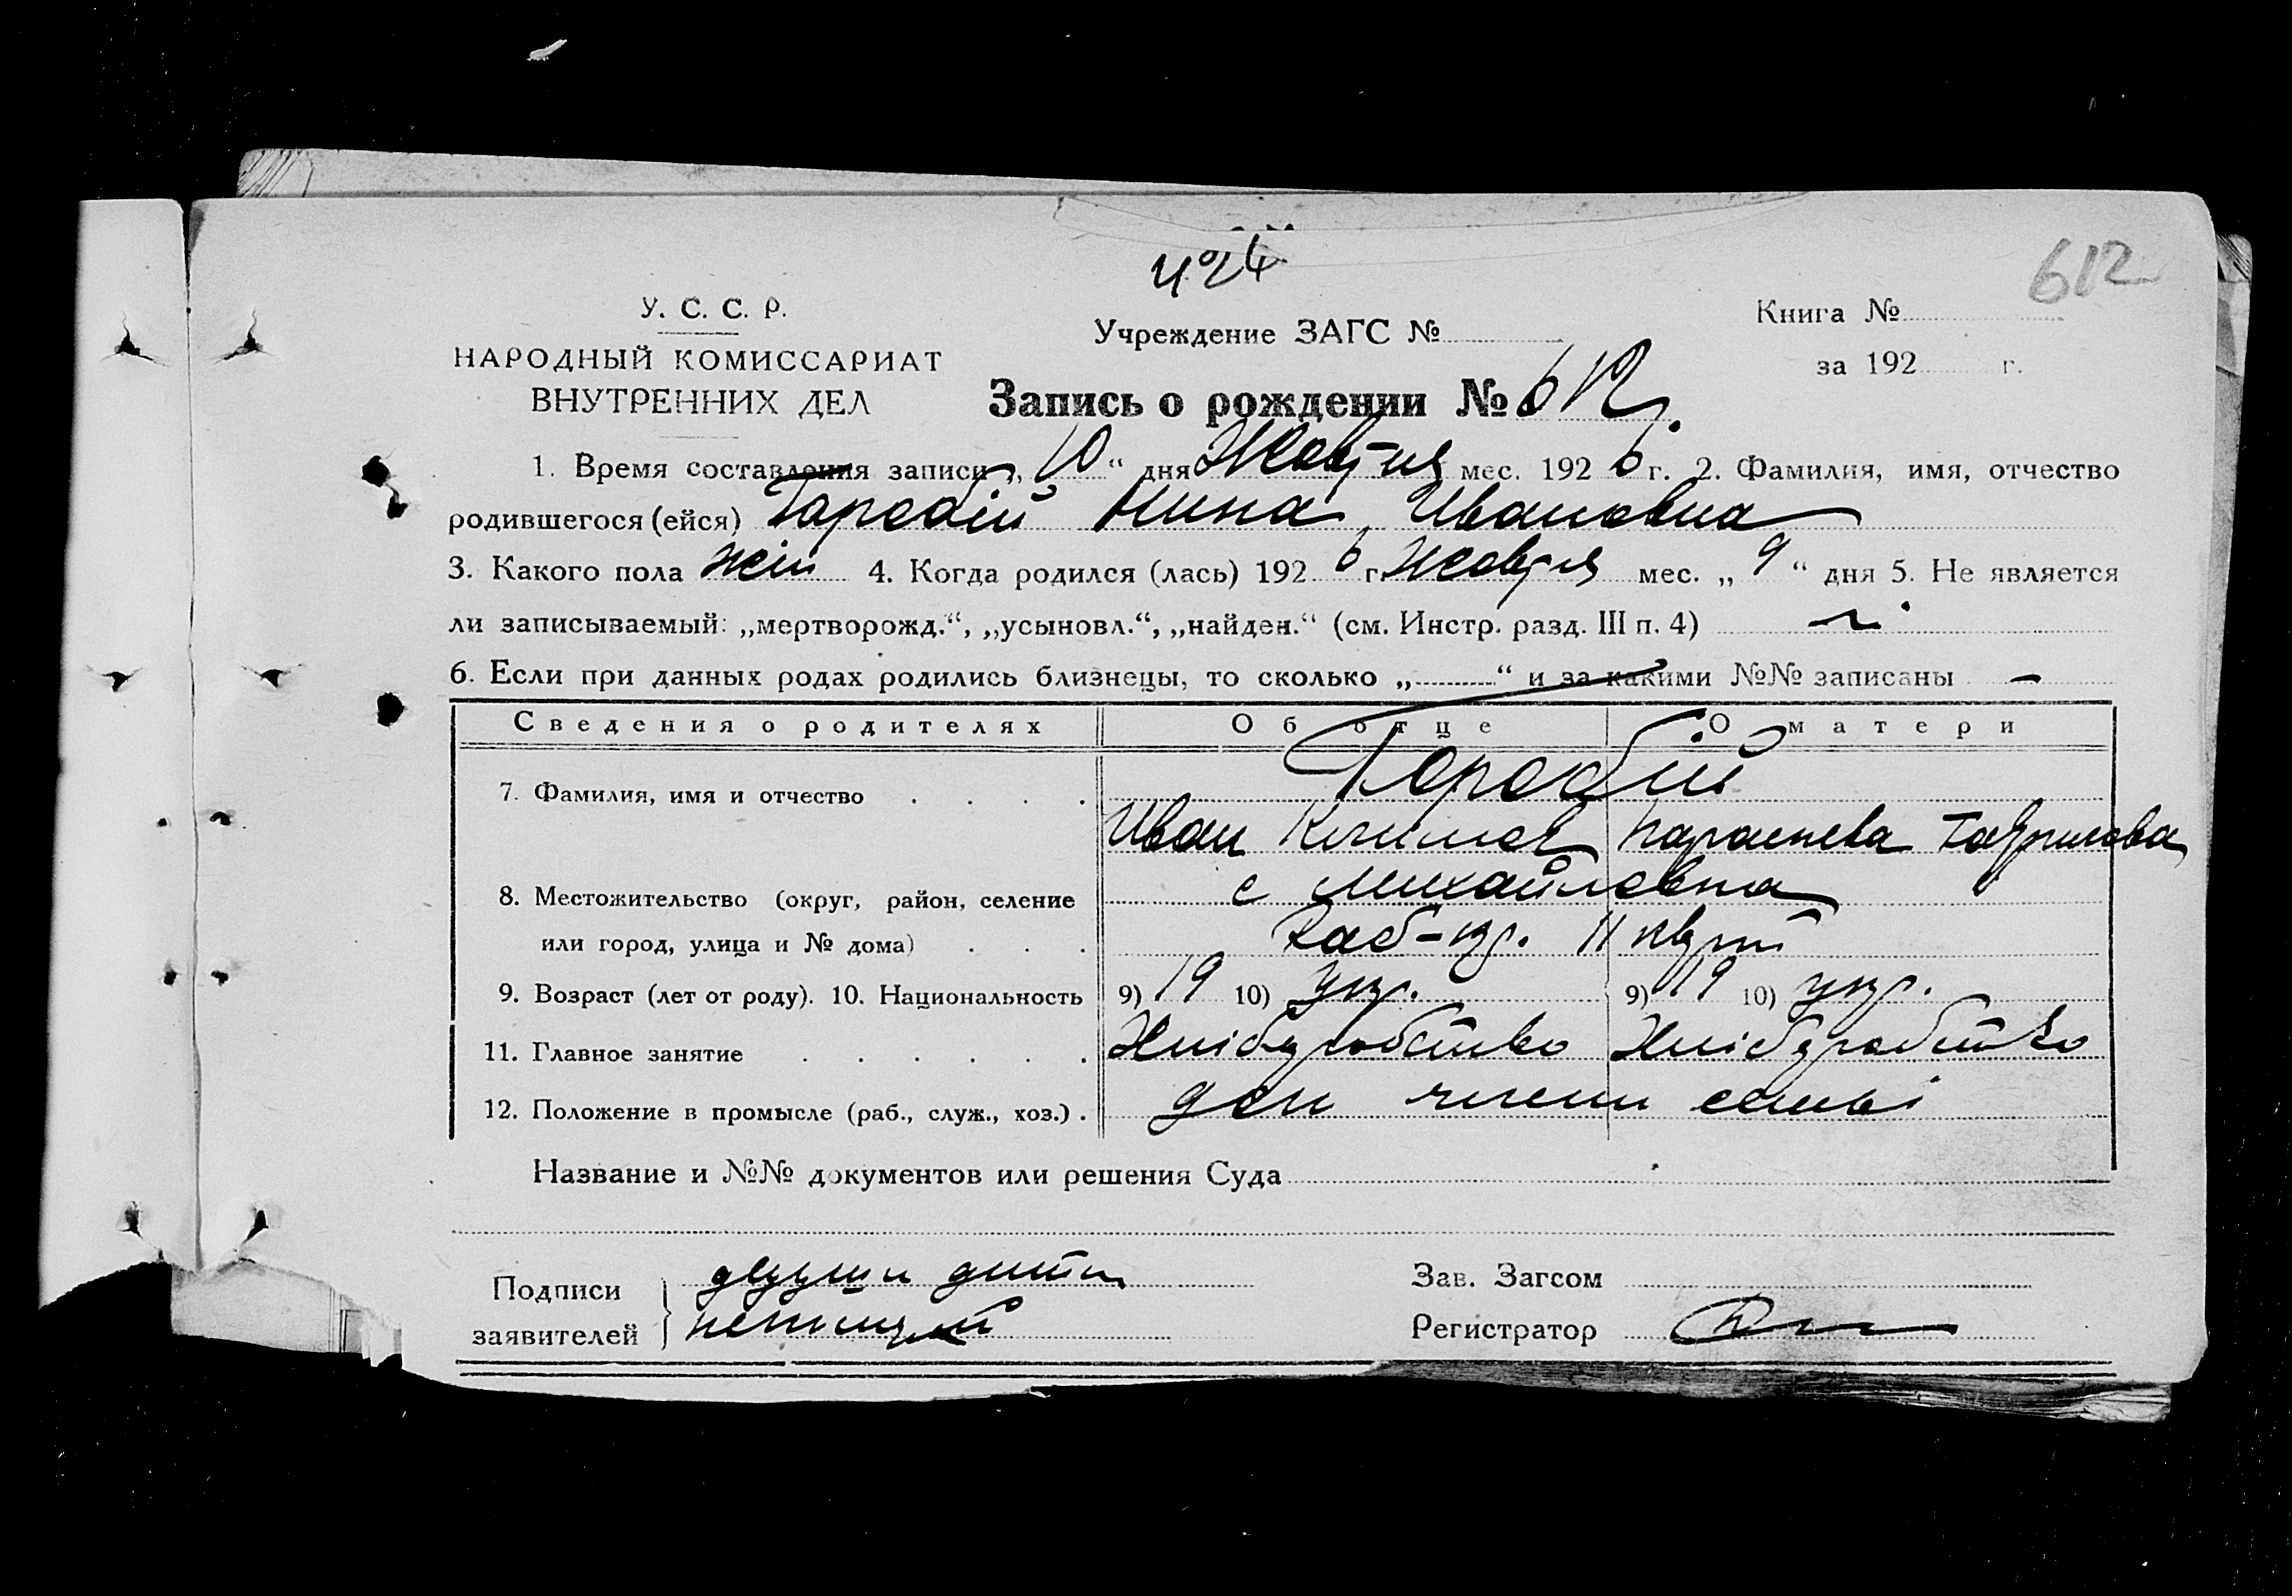 424
612
У. С. С. Р.
НАРОДНЫЙ КОМИССАРИАТ
ВНУТРЕННИХ ДЕЛ
Учреждение ЗАГС №
Книга №
за 192 г.
Запись о рождении № 612
1. Время составления записи „ 10 “ дня Жовтня мес. 192 6 г. 2. Фамилия, имя, отчество
родившегося (ейся) Горобій Нина Ивановна
3. Какого пола жін 4. Когда родился (лась) 192 6 г. Жовтня мес. „ 9 “ дня 5. Не является
ли записываемый: „мертворожд.“, „усыновл.“, „найден.“ (см. Инстр. разд. III п. 4)
6. Если при данных родах родились близнецы, то сколько „ “ и за какими №№ записаны —
Сведения о родителях Об отце О матери
7. Фамилия, имя и отчество Горобій
Иван Климов Параскева Гаврилова
8. Местожительство (округ, район, селение с Михайловка
или город, улица и № дома)
9. Возраст (лет от роду). 10. Национальность 9) 19 10) укр. 9) 19 10) укр.
11. Главное занятие Хліборобство Хліборобство
12. Положение в промысле (раб., служ., хоз.) . доп члени семьі
Название и №№ документов или решения Суда
Подписи
заявителей
Зав. Загсом
Регистратор